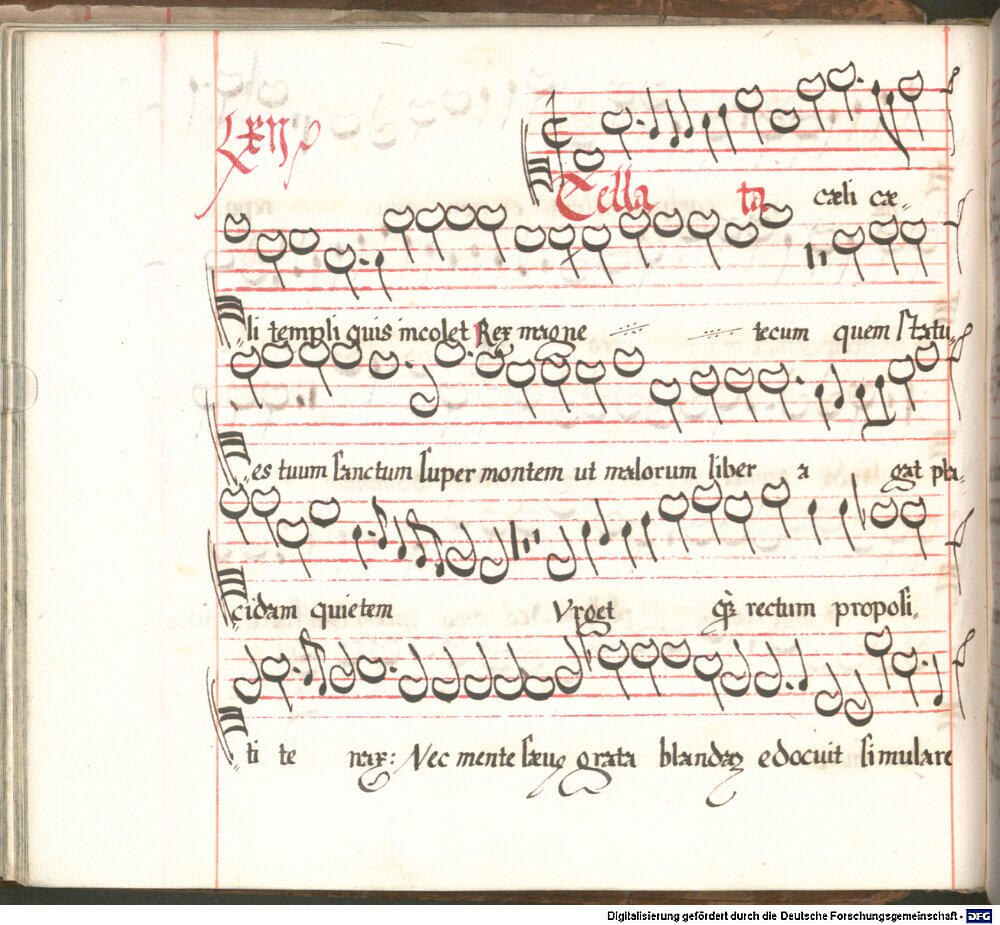 LXII
Stellata cæli cæ-
li templi quis incolet Rex magne tecum quem statu-
es tuum sanctum super montem ut malorum liber agat pla-
cidam quietem Vrget rectum propositi
te nax: Nec mente grata edocuit simulare
Digitalisierung gefördert durch die Deutsche Forschungsgemeinschaft - DFG